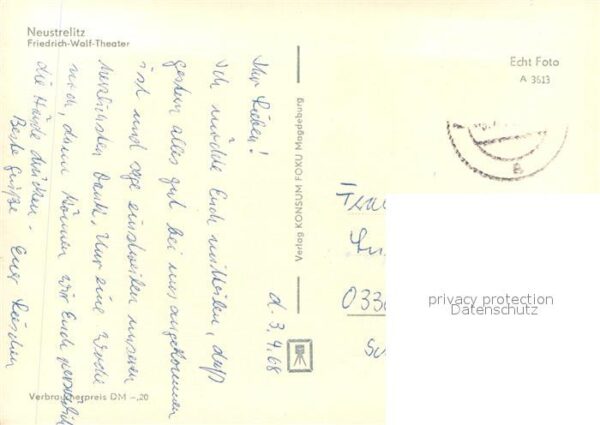 Neustrelitz
Friedrich-Wolf-Theater
Echt Foto
A 3613
Verlag KONSUM FOKU Magdeburg
d. 3.4.68
Ihr Lieben!
Ich möchte Euch mitteilen, daß
gestern alles gut bei uns angekommen
ist und sage einstweilen unseren
herzlichsten Dank. Nur eine Woche
noch, dann können wir Euch persönlich
die Hände drücken.
Beste Grüße Euer
033
privacy protection
Datenschutz
Verbraucherpreis DM -,20